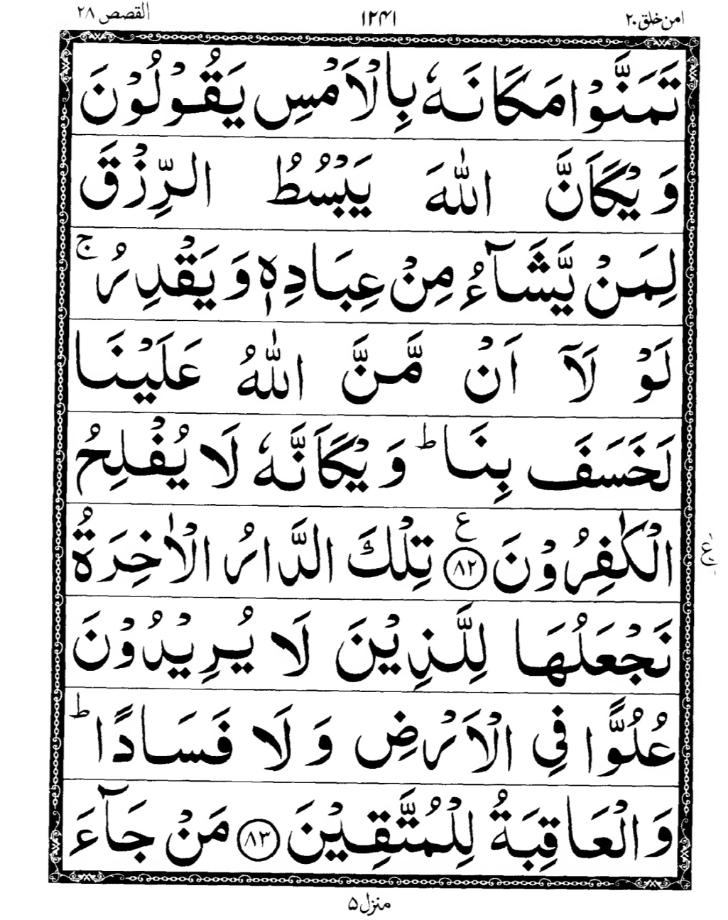 امن خلق ۲۰ ۱۲۴۱ القصص ۲۸
تَمَنَّوْا مَكَانَهٗ بِالْاَمْسِ يَقُوْلُوْنَ
وَيْكَاَنَّ اللّٰهَ يَبْسُطُ الرِّزْقَ
لِمَنْ يَّشَآءُ مِنْ عِبَادِهٖ وَيَقْدِرُ ۚ
لَوْ لَاۤ اَنْ مَّنَّ اللّٰهُ عَلَيْنَا
لَخَسَفَ بِنَا ؕ وَيْكَاَنَّهٗ لَا يُفْلِحُ
الْكٰفِرُوْنَ ﴿۸۲﴾ ع تِلْكَ الدَّارُ الْاٰخِرَةُ
ع
نَجْعَلُهَا لِلَّذِيْنَ لَا يُرِيْدُوْنَ
عُلُوًّا فِي الْاَرْضِ وَلَا فَسَادًا ؕ
وَالْعَاقِبَةُ لِلْمُتَّقِيْنَ ﴿۸۳﴾ مَنْ جَآءَ
منزل ۵